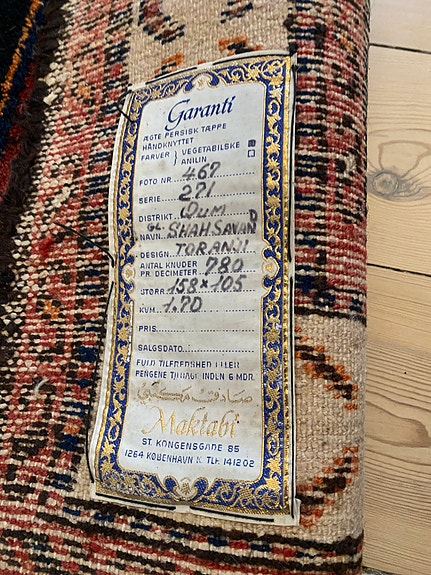 Garanti
ÆGTE PERSISK TÆPPE
HÅNDKNYTTET
FARVER } VEGETABILSKE
ANILIN
FOTO NR. 467
SERIE 271
DISTRIKT QUM
GL. SHAHSAVAND
NAVN
DESIGN TORANJI
ANTAL KNUDER
PR. DECIMETER 780
STØRR. 158 x 105
KVM. 1.70
PRIS
SALGSDATO
FULD TILFREDSHED ELLER
PENGENE TILBAGE INDEN 6 MDR.
Maktabi
ST. KONGENSGADE 85
1264 KØBENHAVN K. TLF. 141202